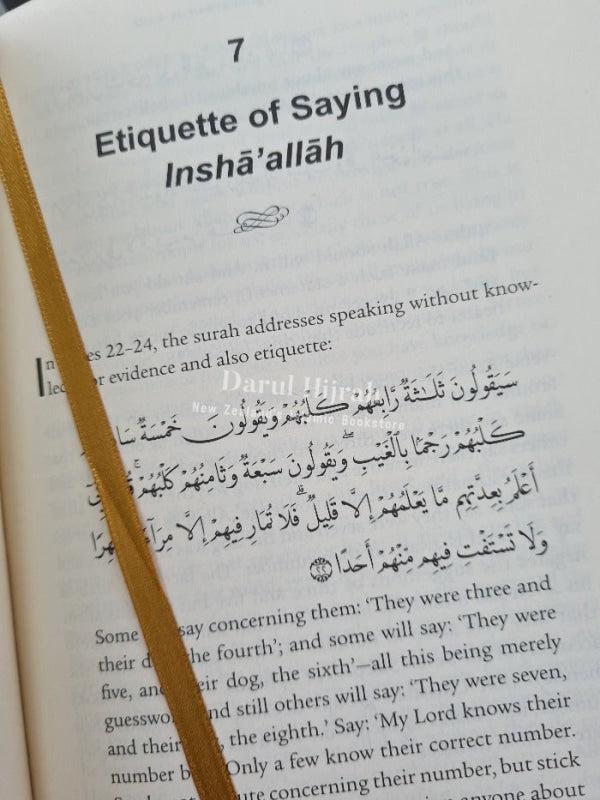 7
Etiquette of Saying
Inshā’allāh
In es 22–24, the surah addresses speaking without know-
led or evidence and also etiquette:
Darul Hijrah
New Zealand's Islamic Bookstore
سَيَقُولُونَ ثَلَـٰثَةٌ رَّابِعُهُمْ كَلْبُهُمْ وَيَقُولُونَ خَمْسَةٌ
كَلْبُهُمْ رَجْمًۢا بِٱلْغَيْبِ ۖ وَيَقُولُونَ سَبْعَةٌ وَثَامِنُهُمْ كَلْبُهُمْ ۚ
أَعْلَمُ بِعِدَّتِهِم مَّا يَعْلَمُهُمْ إِلَّا قَلِيلٌ ۗ فَلَا تُمَارِ فِيهِمْ إِلَّا
وَلَا تَسْتَفْتِ فِيهِم مِّنْهُمْ أَحَدًا ٢٢
Some say concerning them: ‘They were three and
their d he fourth’; and some will say: ‘They were
five, and eir dog, the sixth’—all this being merely
guesswo nd still others will say: ‘They were seven,
and their , the eighth.’ Say: ‘My Lord knows their
number b Only a few know their correct number.
ute concerning their number, but stick
anyone about